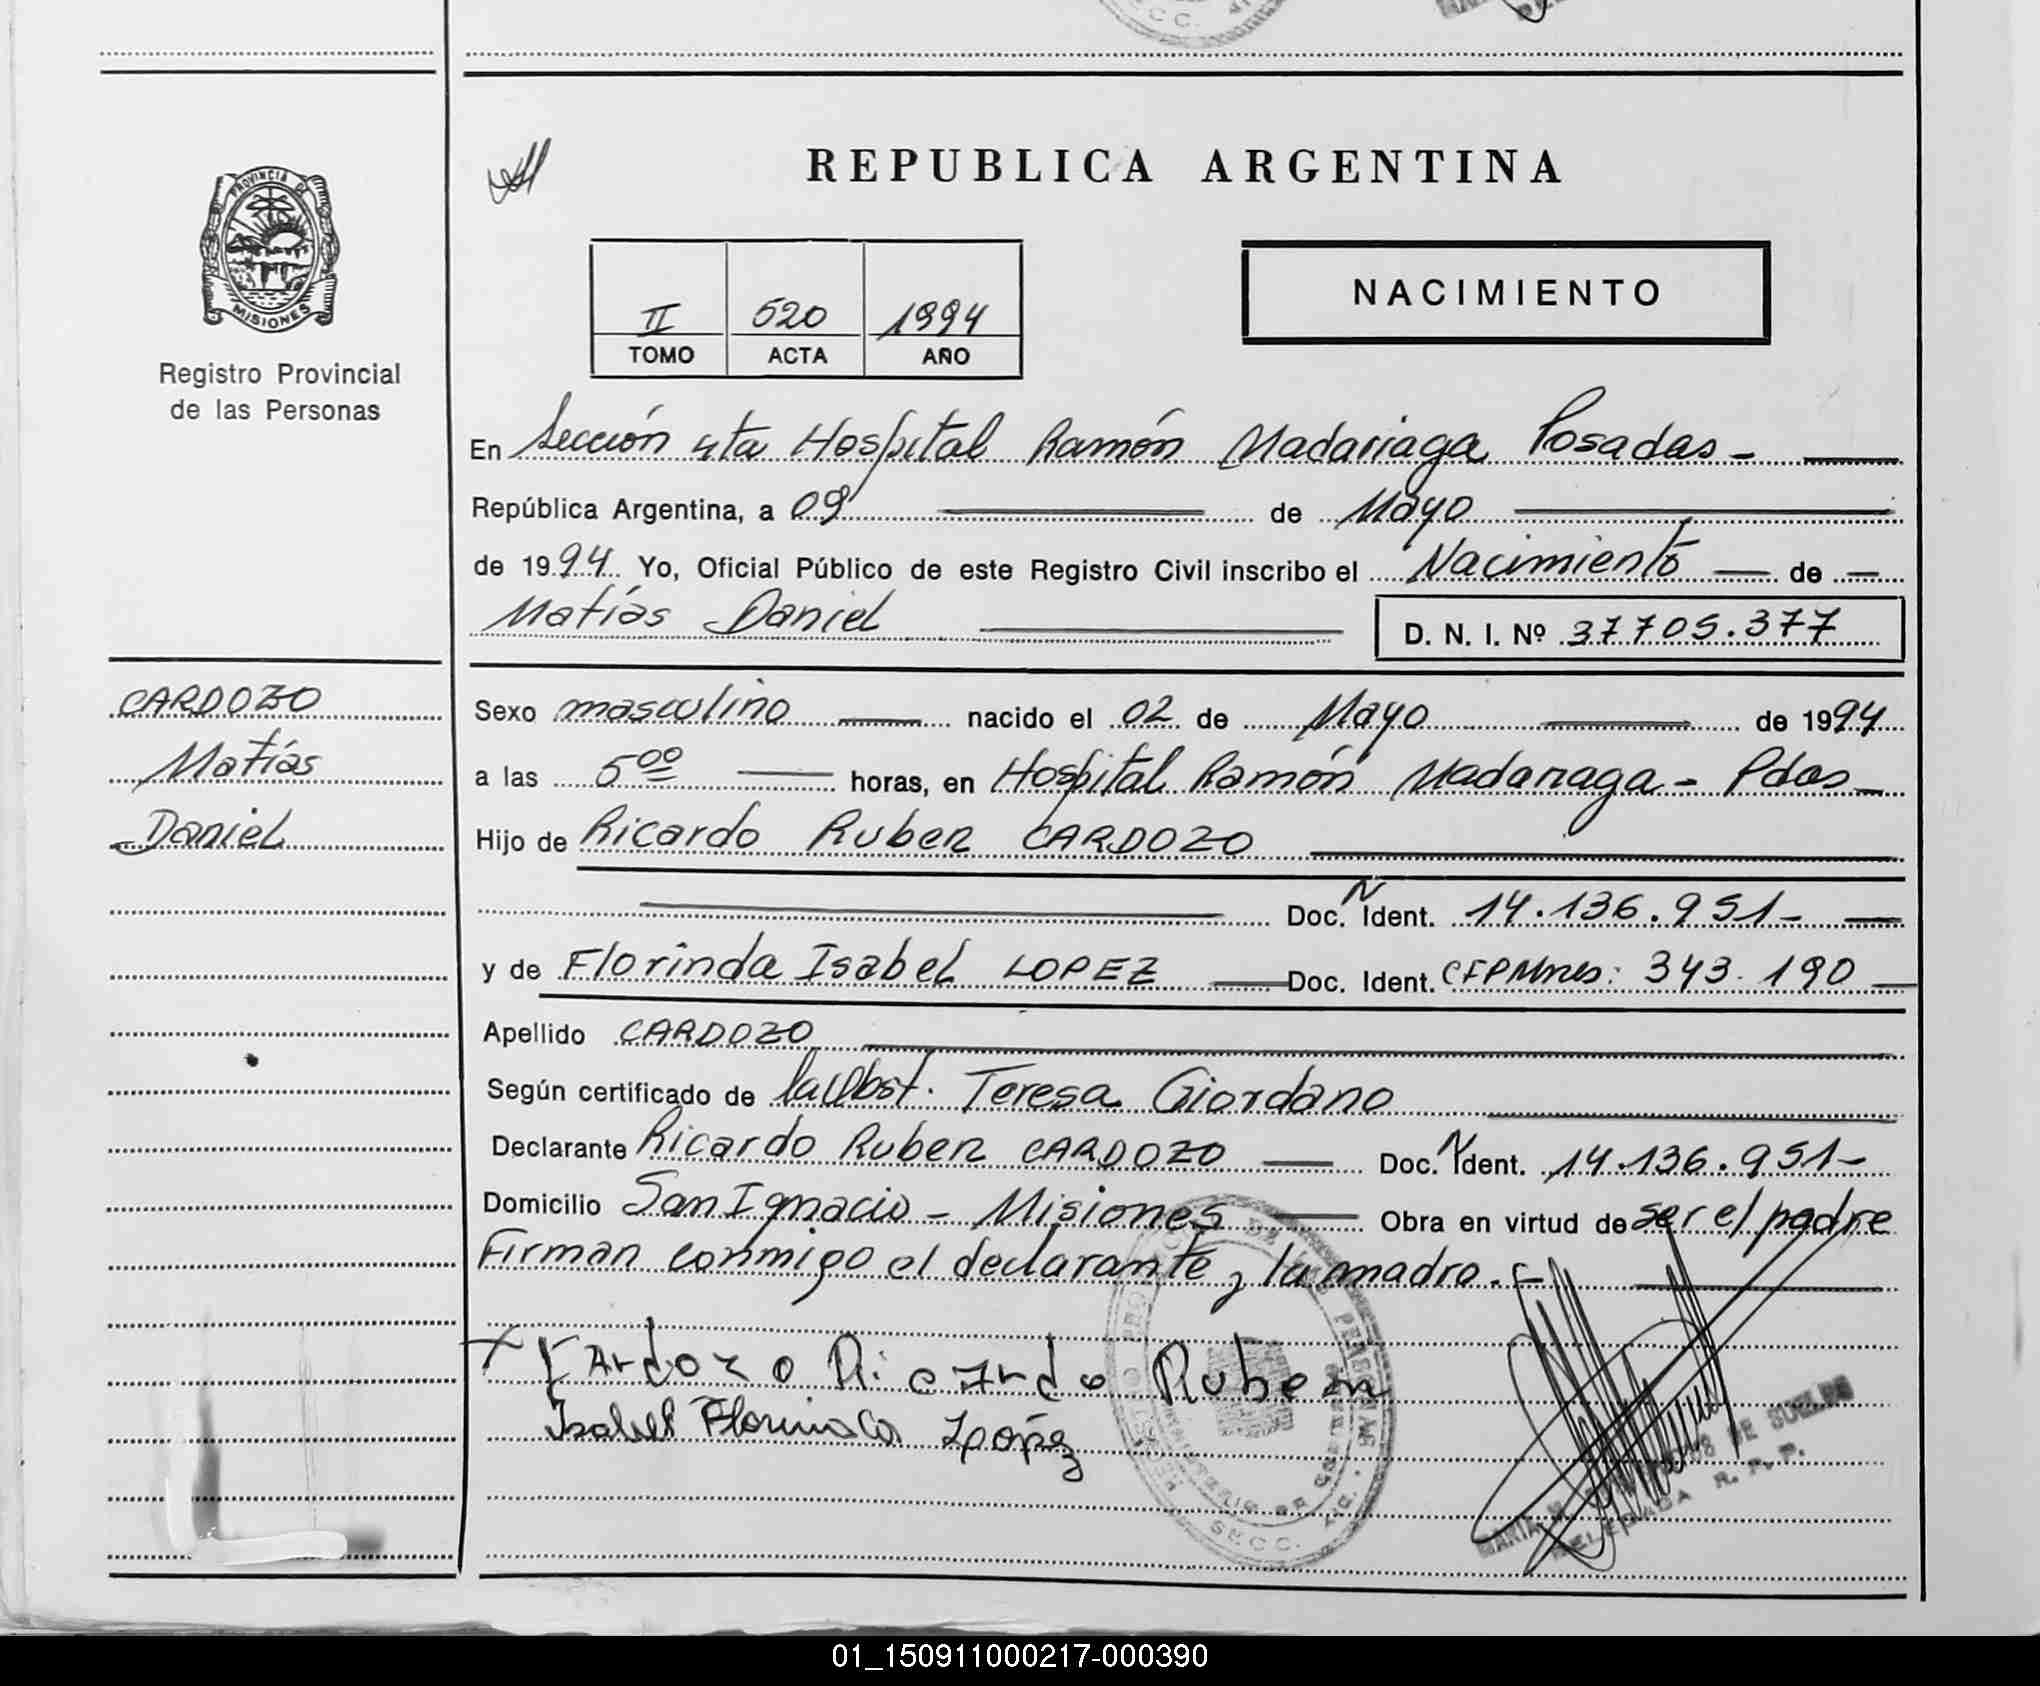 REPUBLICA ARGENTINA
PROVINCIA DE
MISIONES
Registro Provincial
de las Personas
II 520 1994
TOMO ACTA AÑO
NACIMIENTO
En Sección 4ta Hospital Ramón Madariaga Posadas -
República Argentina, a 09 de Mayo
de 1994. Yo, Oficial Público de este Registro Civil inscribo el Nacimiento de
Matías Daniel
D. N. I. Nº 37705.377
CARDOZO
Matías
Daniel
Sexo masculino nacido el 02 de Mayo de 1994
a las 5 00 horas, en Hospital Ramón Madariaga - Pdas
Hijo de Ricardo Ruben CARDOZO
Doc. N Ident. 14.136.951-
y de Florinda Isabel LOPEZ Doc. Ident. CFPMnes: 343.190
Apellido CARDOZO
Según certificado de la Obst. Teresa Giordano
Declarante Ricardo Ruben CARDOZO Doc. N Ident. 14.136.951-
Domicilio San Ignacio - Misiones Obra en virtud de ser el padre
Firman conmigo el declarante y la madre.-
Cardozo Ricardo Ruben
Isabel Florinda López
DE SUELDO
MARIA M.
DELEGADA R. P. P.
SECC.
01_150911000217-000390